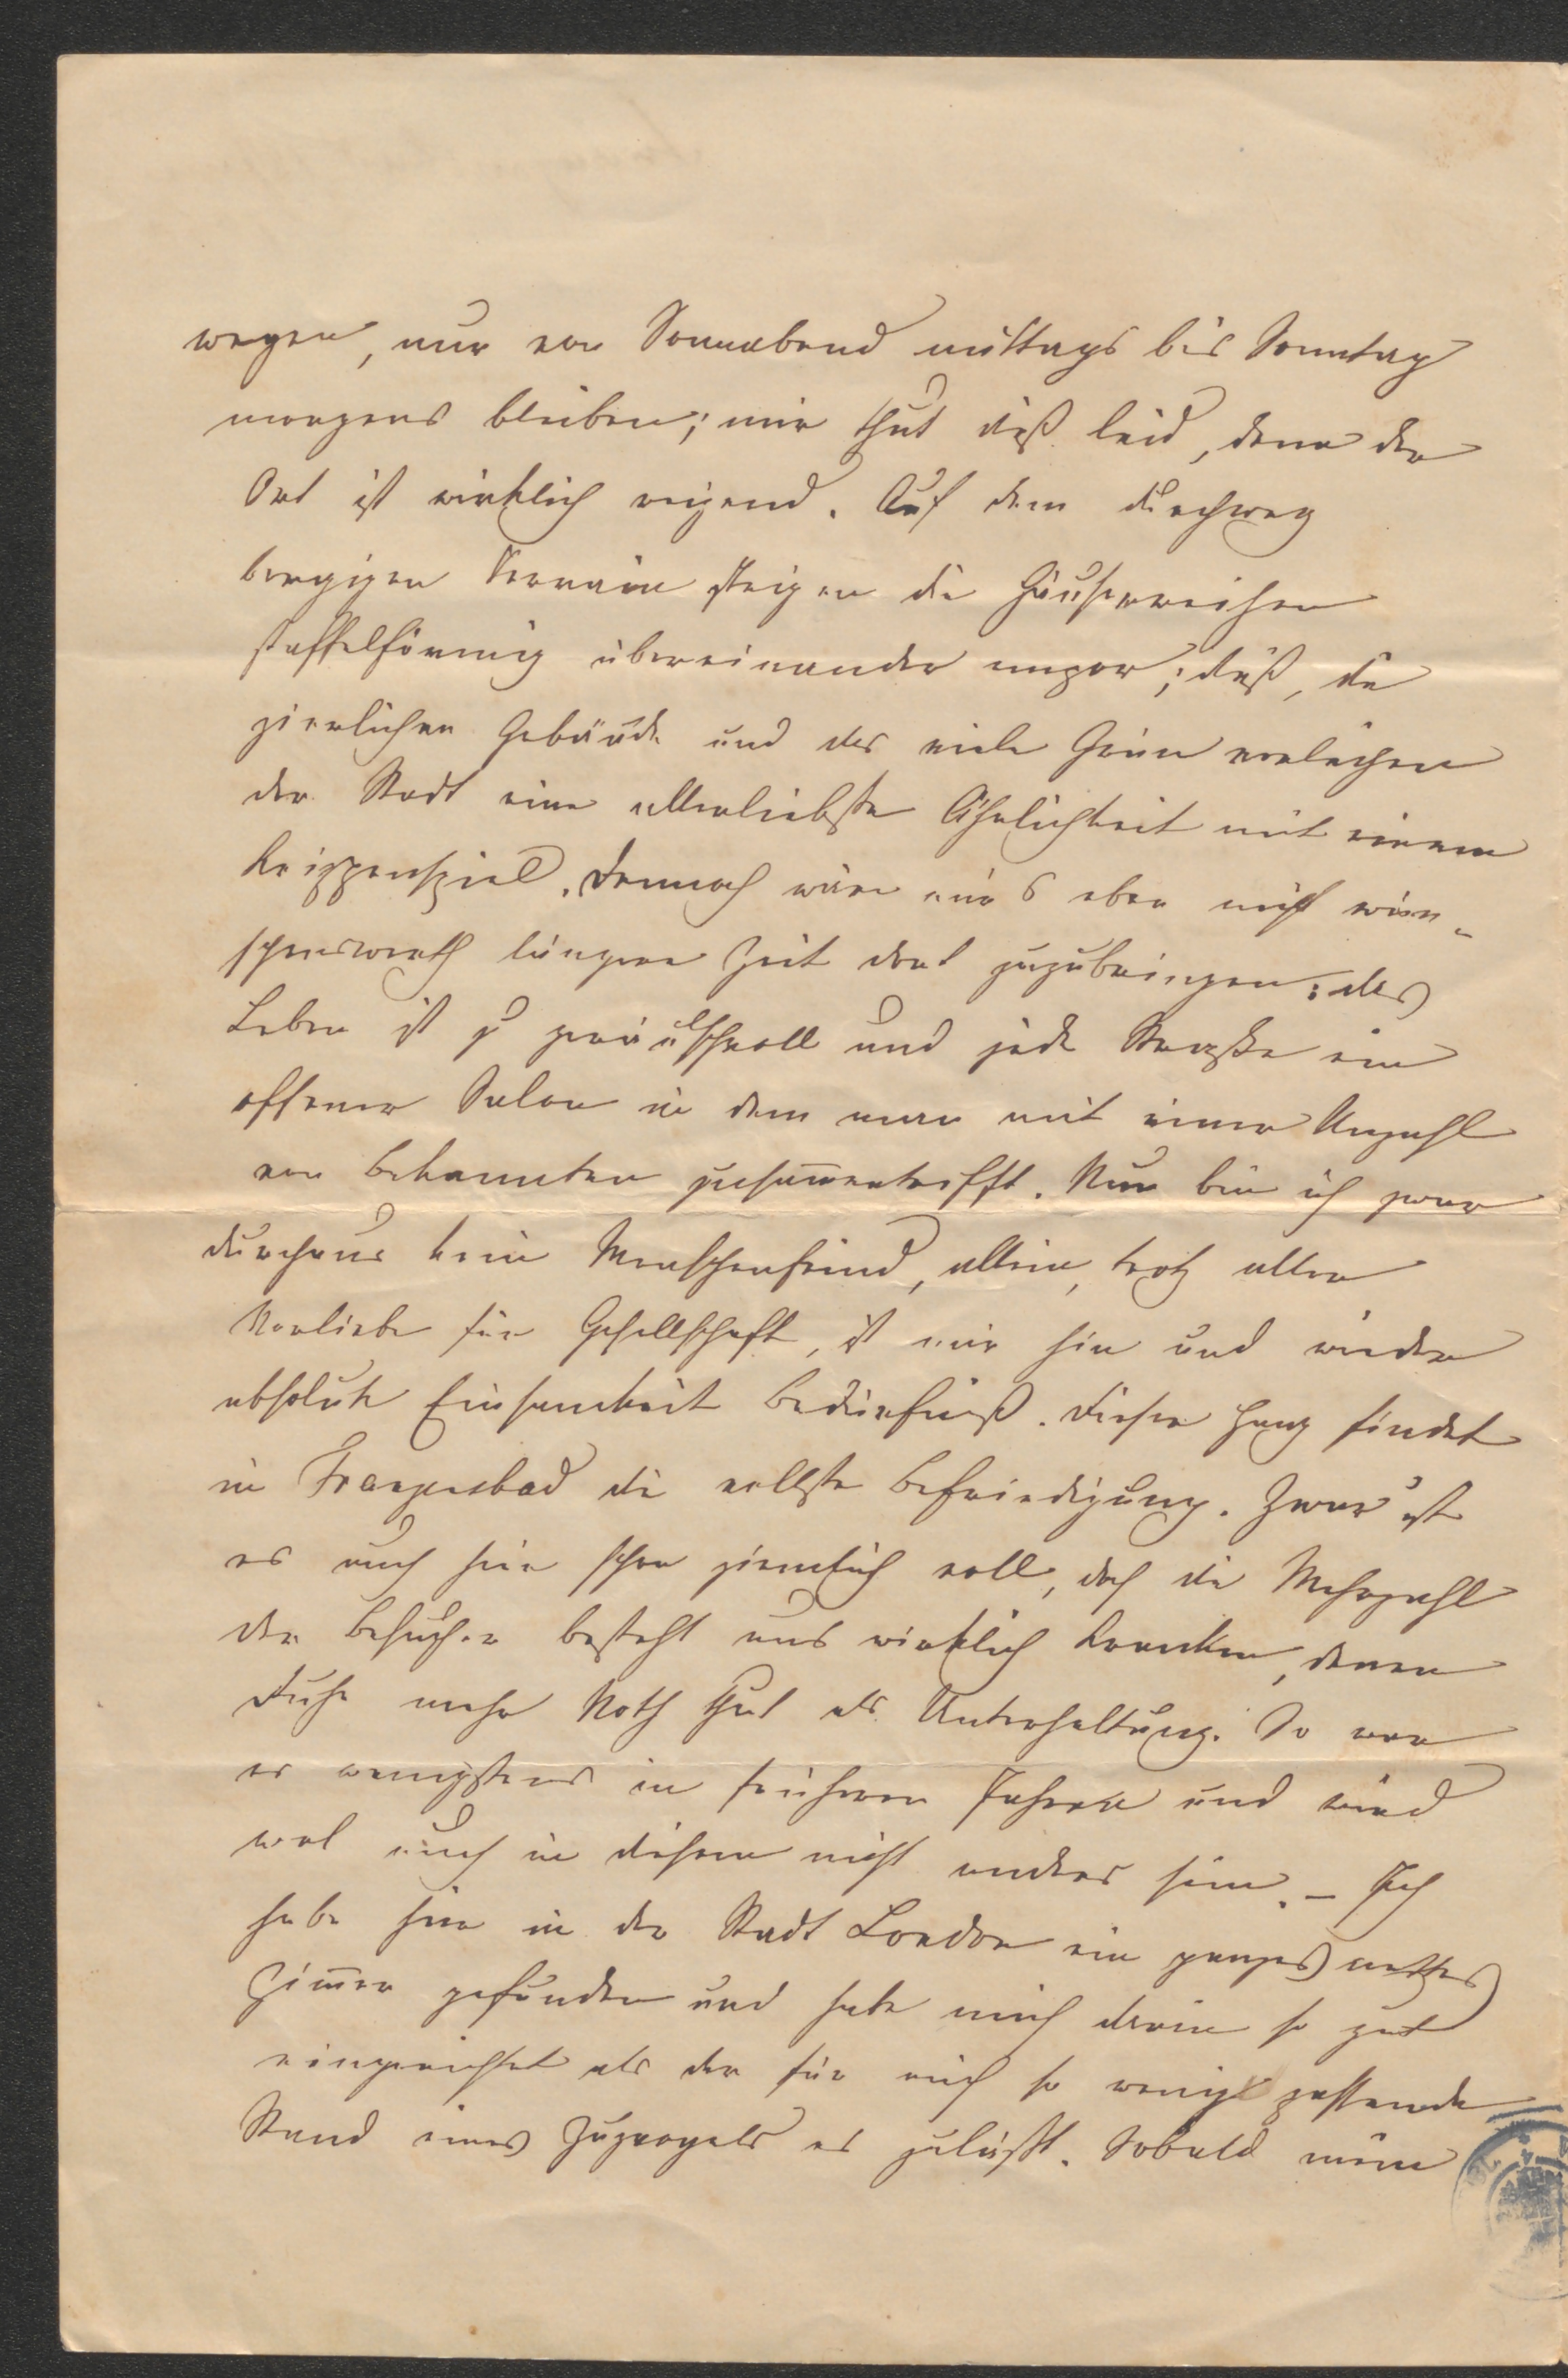 wegen, nur von Sonnabend mittags bis Sonntag
morgens bleiben; mir thut dieß leid, denn der
Ort ist wirklich reizend. Auf dem durchweg
bergigen Terrain steigen die Häuserreihen
staffelförmig übereinander empor; dieß, die
zierlichen Gebäude und das viele Grün verleihen
der Stadt eine allerliebste Ähnlichkeit mit einem
Krippenspiel. Dennoch wäre mir's eben nicht wün-
schenswerth längere Zeit dort zuzubringen; das
Leben ist zu geräuschvoll und jede Straße ein
offener Salon in dem man mit einer Unzahl
von Bekannten zusam̅entrifft. Nun bin ich zwar
durchaus kein Menschenfeind, allein, trotz aller
Vorliebe für Gesellschaft, ist mir hin und wieder
absolute Einsamkeit Bedürfniß. Dieser Hang findet
in Franzensbad die vollste Befriedigung. Zwar ist
es auch hier schon ziemlich voll, doch die Mehrzahl
der Besucher besteht aus wirklich Kranken, denen
Ruhe mehr Noth thut als Unterhaltung. So war
es wenigstens in früheren Jahren und wird
wol auch in diesem nicht anders sein. – Ich
habe hier in der Stadt London ein ganzes nettes
Zim̅er gefunden und habe mich darin so gut
eingerichtet als der für mich so wenig passende
Stand eines Zugvogels es zuläßt. Sobald meine